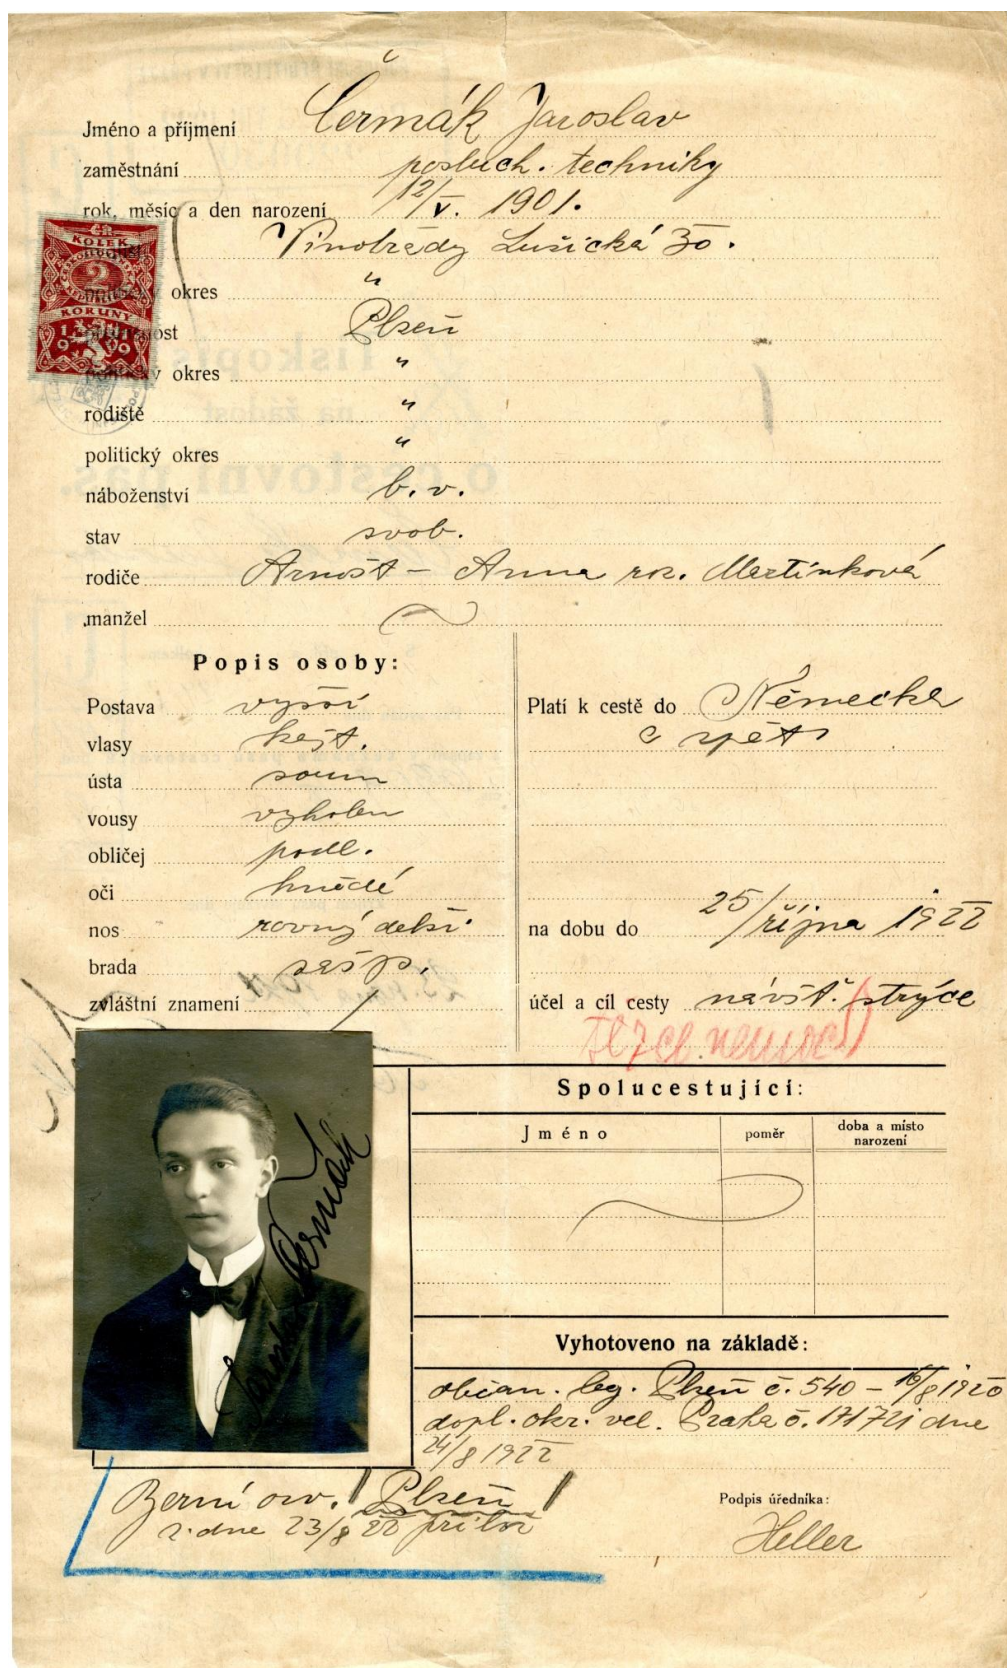 Jméno a příjmení Čermák Jaroslav
zaměstnání posluch. techniky
rok, měsíc a den narození 12/V. 1901.
Vinohrady Lužická 30.
okres "
Plzeň
okres "
rodiště "
politický okres "
náboženství b. v.
stav svob.
rodiče Arnošt – Anna roz. Martínková
manžel
KOLEK
2
KORUNY
1919
Popis osoby:
Postava vyšší
vlasy kašt.
ústa soum
vousy vyholen
obličej podl.
oči hnědé
nos rovný delší.
brada zašp.
zvláštní znamení
Platí k cestě do Německa
a zpět
na dobu do 25/října 1922
účel a cíl cesty návšt. strýce
nemoc
Spolucestující:
Jméno poměr doba a místo narození
Jaroslav Čermák
Vyhotoveno na základě:
občan. leg. Plzeň č. 540 – 16/8 1920
dopl. okr. vel. Praha č. 171721 dne
24/8 1922
Berní osv. Plzeň
z. dne 23/8 22
Podpis úředníka:
Heller